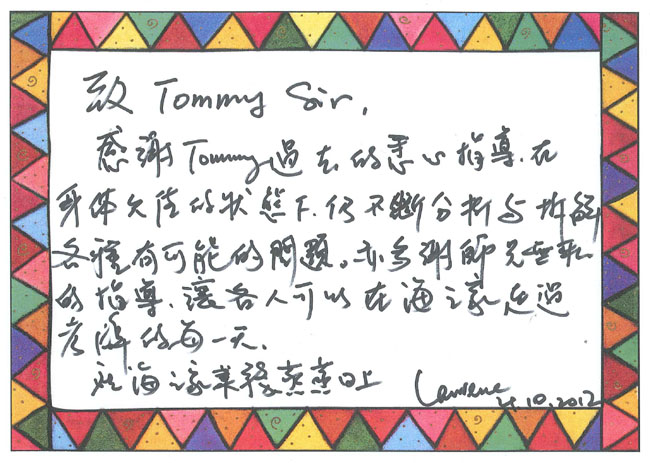 致 Tommy Sir,
感謝Tommy過去的悉心指導.在
身体欠佳的狀態下.仍不斷分析与拆解
各種有可能的問題。亦多謝師兄
的指導.讓各人可以在海濠走過
的每一天.
祝海濠業務蒸蒸日上
Lawrence 4.10.2012